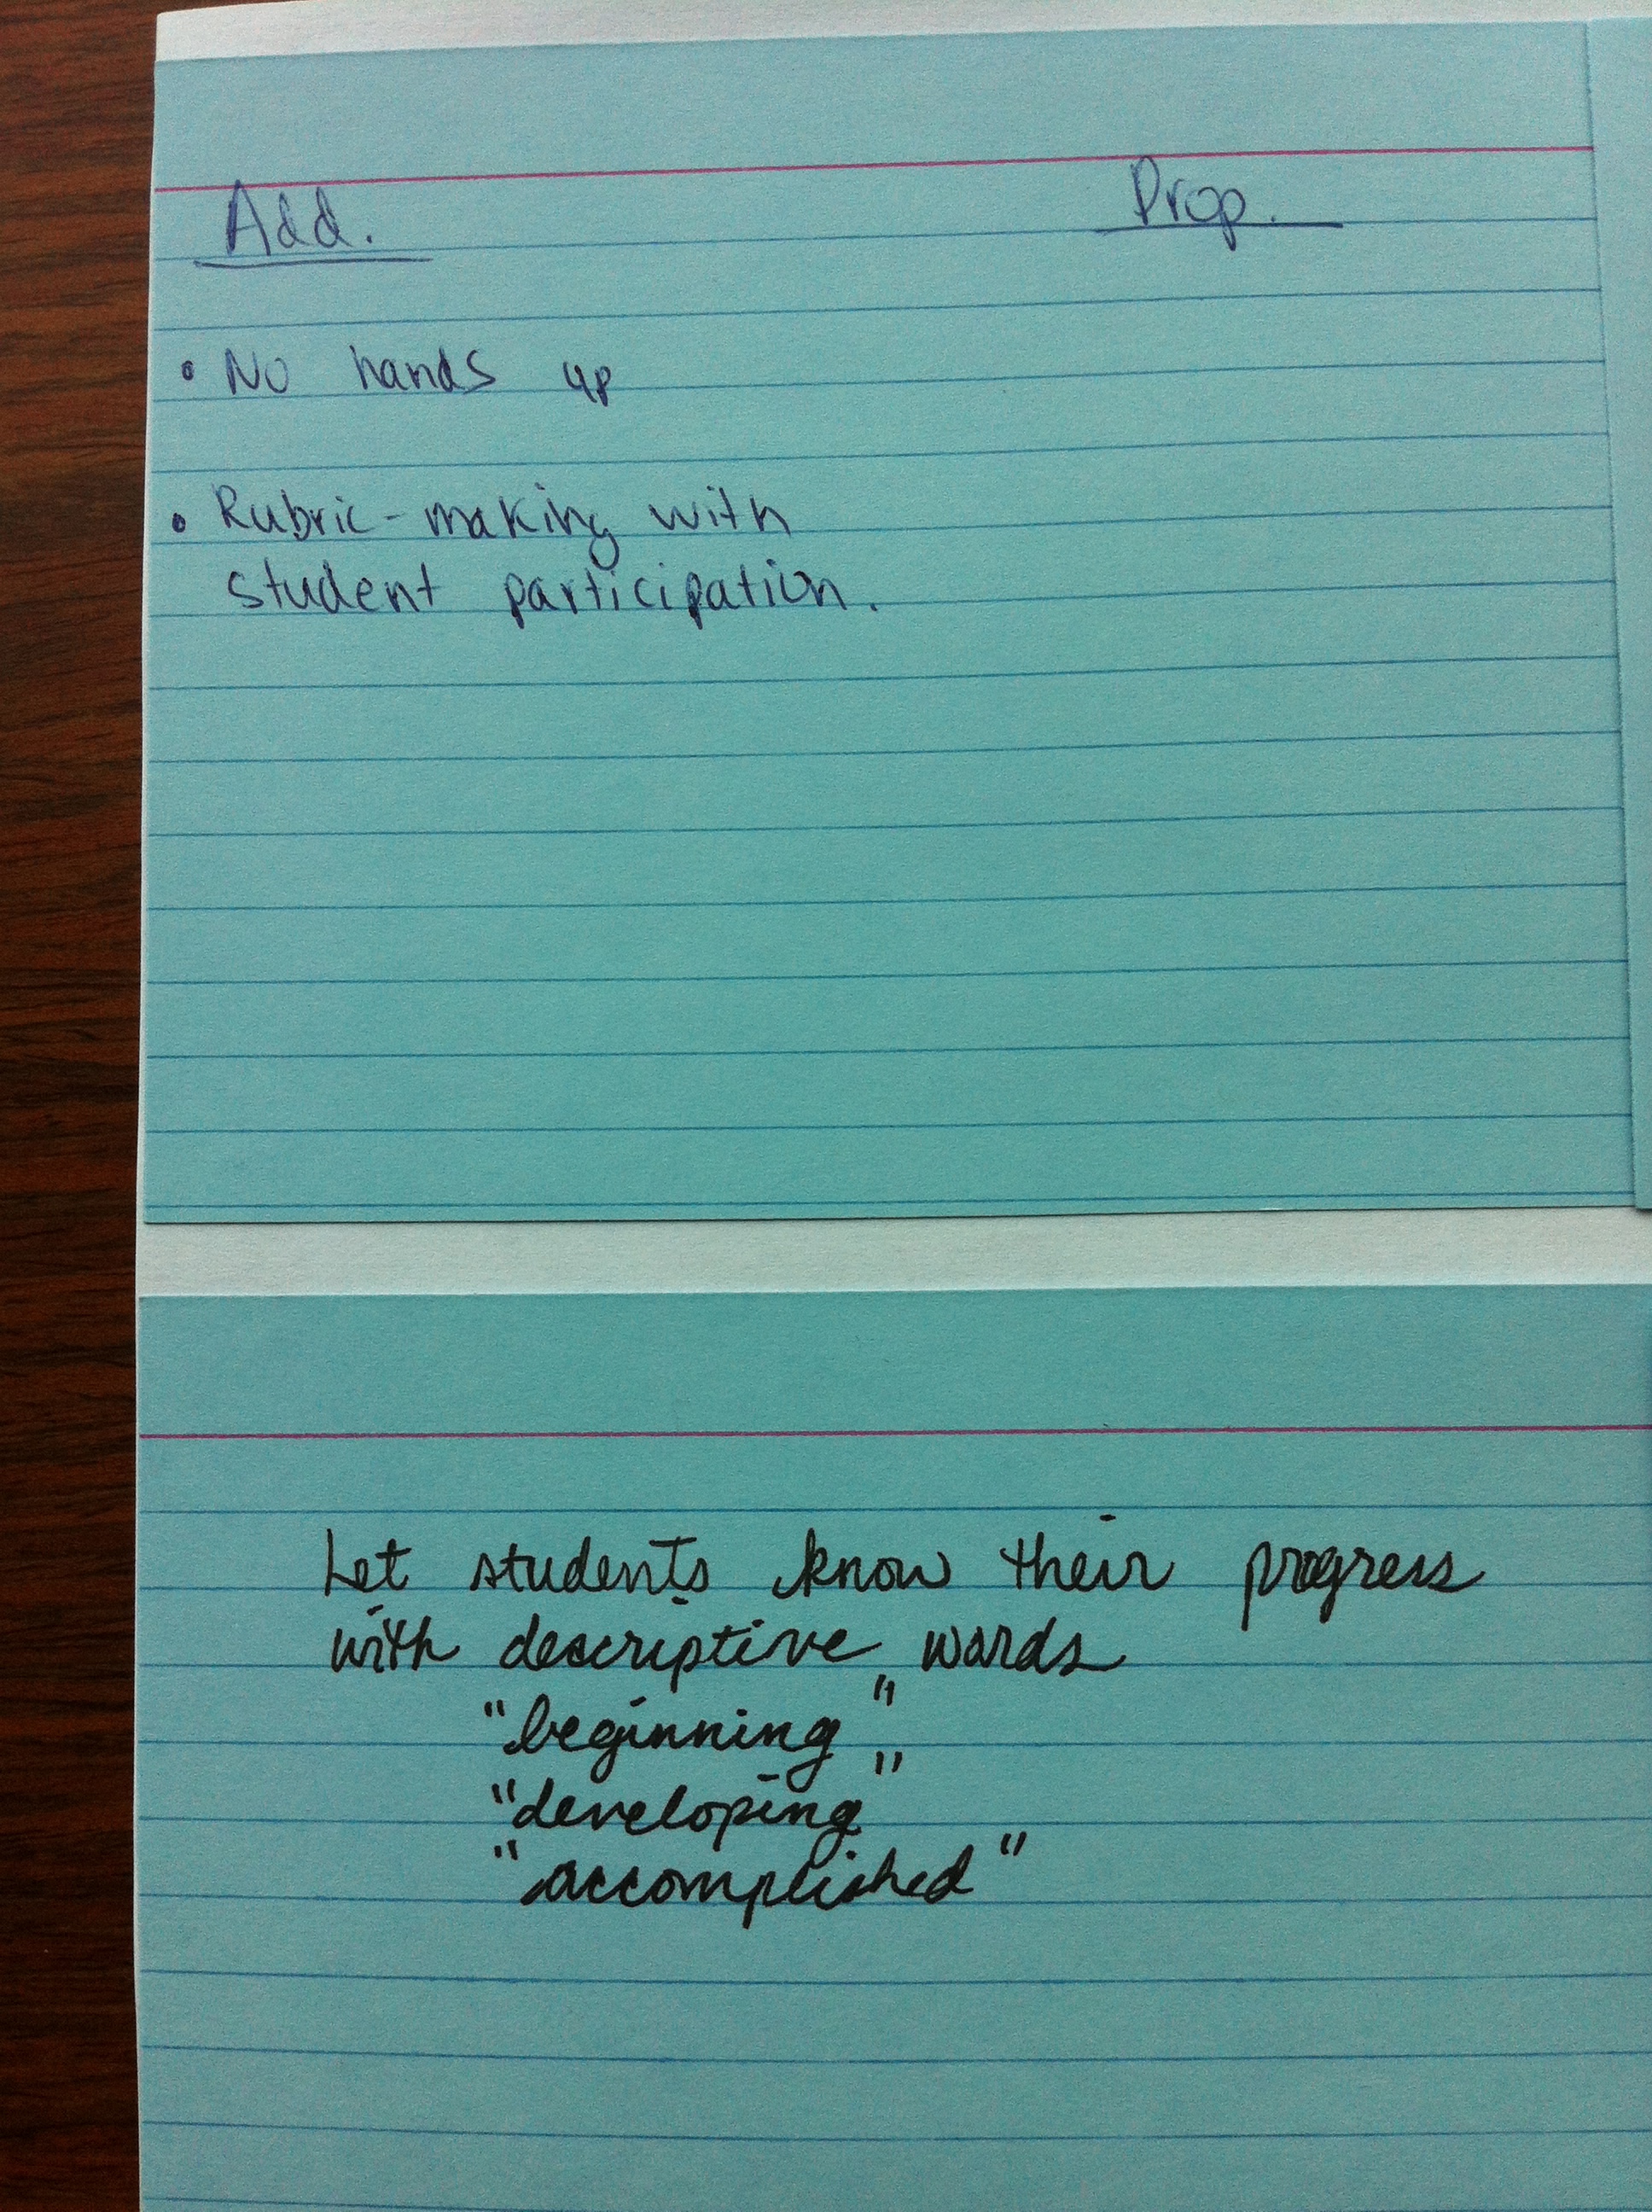 Add. Drop.
• No hands up
• Rubric-making with
student participation.
Let students know their progress
with descriptive words
"beginning"
"developing"
"accomplished"